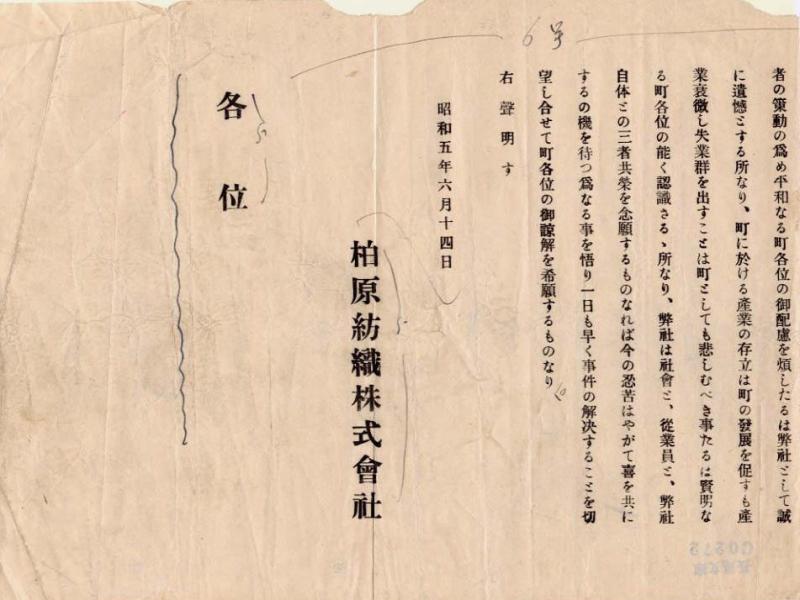 6号
者の策動の爲め平和なる町各位の御配慮を煩したるは弊社として誠
に遺憾とする所なり、町に於ける産業の存立は町の發展を促すも産
業衰微し失業群を出すことは町としても悲しむべき事たるは賢明な
る町各位の能く認識さるゝ所なり、弊社は社會と、從業員と、弊社
自体との三者共榮を念願するものなれば今の忍苦はやがて喜を共に
するの機を待つ爲なる事を悟り一日も早く事件の解決することを切
望し合せて町各位の御諒解を希願するものなり
右聲明す
昭和五年六月十四日
柏原紡織株式會社
各位